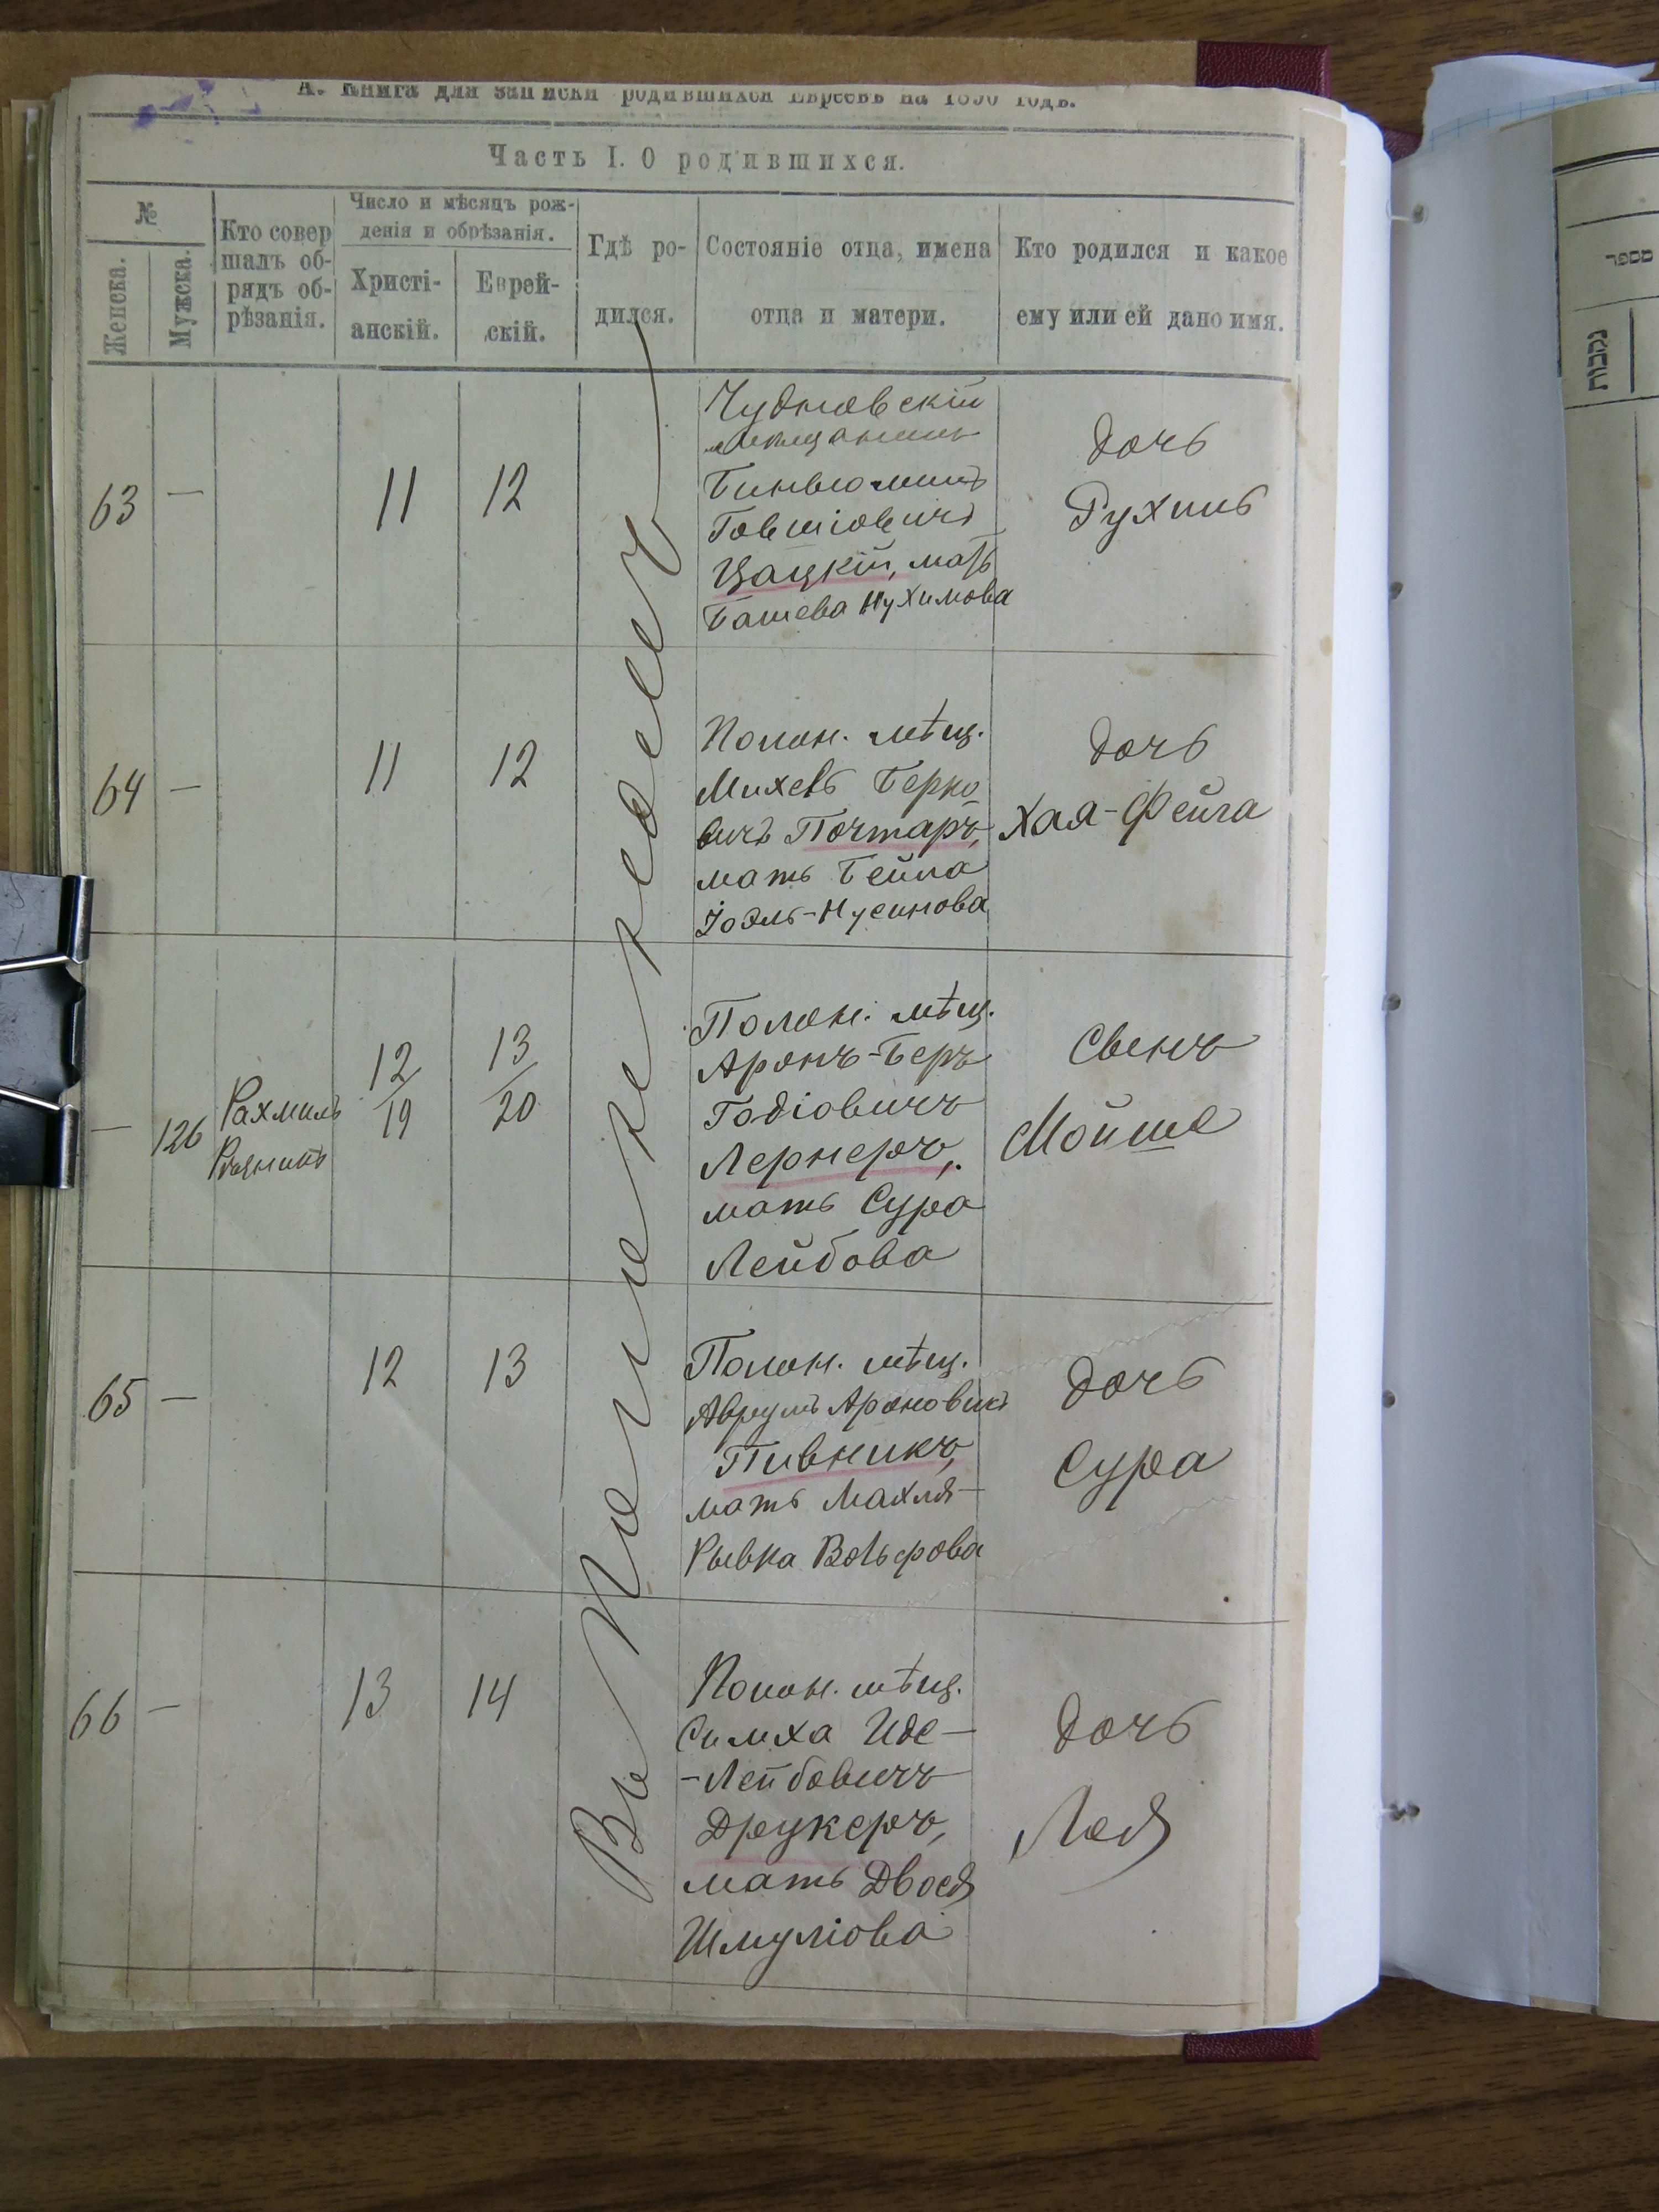 А. Книга для записки родившихся Евреевъ на 1890 годъ.
Часть I. О родившихся.
№
Женска.
Мужска.
Кто совер
шалъ об-
рядъ об-
рѣзанія.
Число и мѣсяцъ рож-
денія и обрѣзанія.
Христі-
анскій.
Еврей-
скій.
Гдѣ ро-
дился.
Состояніе отца, имена
отца и матери.
Кто родился и какое
ему или ей дано имя.
63
—
11
12
Чудновскій
мѣщанинъ
Биньюминъ
Говшіовичъ
Цацкій, мать
Башева Нухимова
дочь
Рухинь
64
—
11
12
Полон. мѣщ.
Михель Берко
вичъ Почтаръ,
мать Бейла
Іодль-Нусинова
дочь
Хая-Фейга
—
126
Рахмиль
12
19
13
20
Полон. мѣщ.
Аронъ-Беръ
Годіовичъ
Лернеръ,
мать Сура
Лейбова
Сынъ
Мойше
65
—
12
13
Полон. мѣщ.
Аврумъ Ароновичъ
Пивникъ,
мать Махля-
Рывка Вольфова
дочь
Сура
66
—
13
14
Полон. мѣщ.
Симха Иде-
-Лейбовичъ
Друкеръ,
мать Двося
Шмуліова
дочь
Лея
Въ
מספר
נקבות